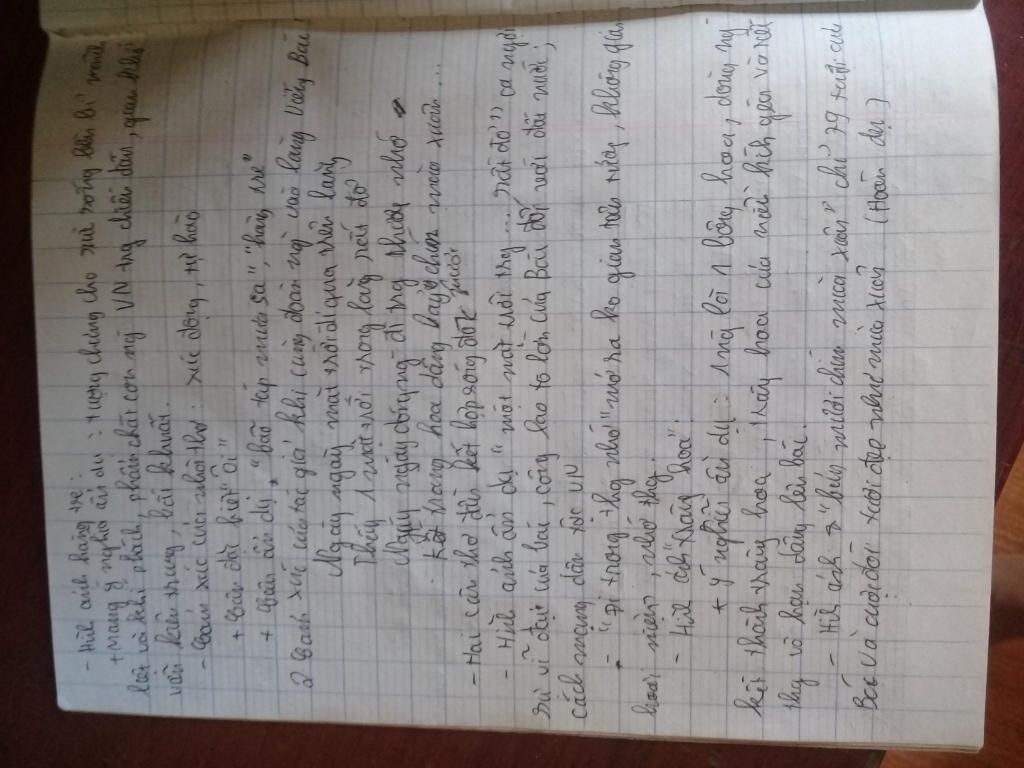 - Hìh ảnh hàng tre:
+ Mang ý nghĩa ẩn dụ: tượng chưng cho sự sống bền bỉ mãnh
liệt và khí phách, phẩm chất con ng VN trg chiến đấu, gan khổ
vẫn kiên trung, bất khuất.
- Cảm xúc của nhà thơ: xúc động, tự hào
+ Câu đặc biệt "Ôi"
+ Câu ẩn dụ, "bão táp mưa sa", "hàng tre"
2 Cảm xúc của tác giả khi cùng đoàn ng vào lăng viếng Bác
Ngày ngày mặt trời đi qua trên lăng
Thấy 1 mặt trời trong lăng rất đỏ
Ngày ngày dòng ng đi trg thương nhớ
Kết tràng hoa dâng bảy chín mùa xuân...
- Hai câu thơ đầu kết hợp sóng đôi
- Hìh ảnh ẩn dụ "mặt mặt trời trg... rất đỏ" ca ngợi
sự vĩ đại của bác, công lao to lớn của Bác đối với đất nước,
cách mạng dân tộc VN
- "Đi trong trg nhớ" mở ra ko gian tràn đầy, không gian
hoài niệm, nhớ thg.
- Hìh ảh "tràng hoa":
+ Ý nghĩa ẩn dụ: mỗi lời 1 bông hoa, dòng ng
kết thành tràng hoa, tràng hoa của niềm kíh yêu và tiếc
thg vô hạn dâng lên bác.
- Hìh ảh "bảy mươi chín mùa xuân" chỉ 79 tuổi của
Bác và cuộc đời tươi đẹp như mùa xuân (Hoán dụ)